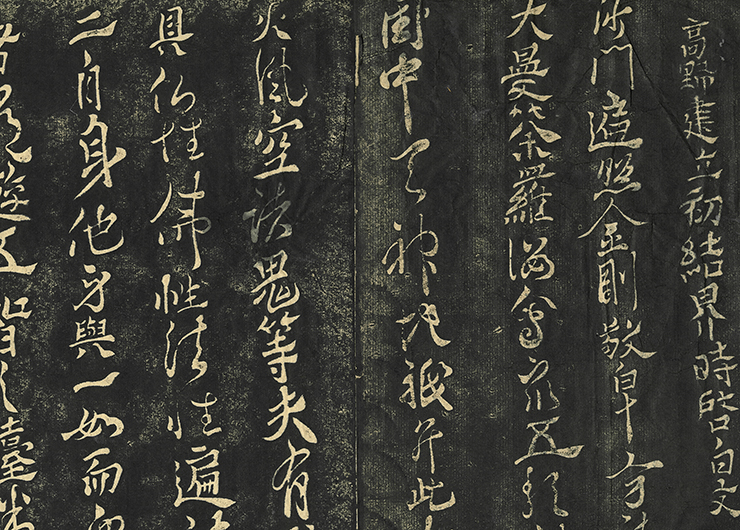 高野建立初結界時啓白文
沙門遍照金剛敬白十方
大曼荼羅海會衆五類
國中天神地祇幷此
火風空諸鬼等夫有
具仏性佛性法性遍
二自身他身與一如而
者常遊五智之臺